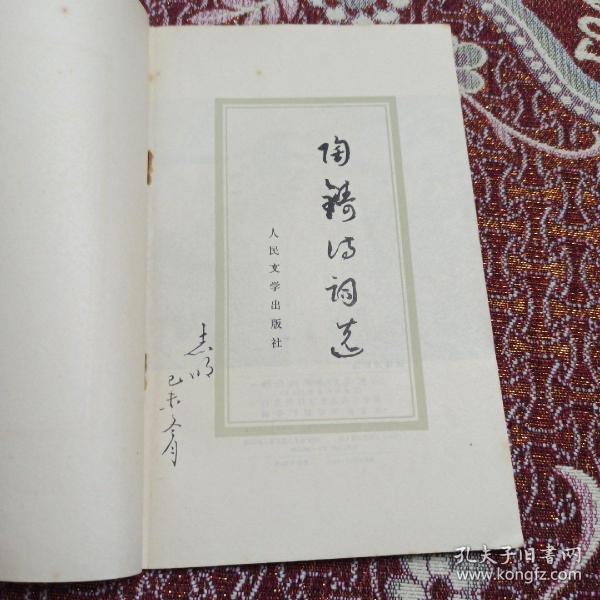 陶铸诗词选
人民文学出版社
志明
己未冬月
孔夫子旧书网
www.kongfz.com